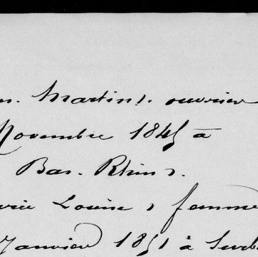 Martin, ouvrier
Novembre 1845 à
Bas. Rhin,
Louise, femme
Janvier 1851 à